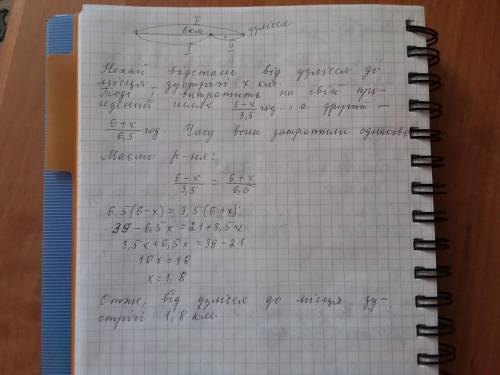 II
6 км
узлісся
I
II
Нехай відстань від узлісся до
місця зустрічі x км
Тоді I витратить на свій про-
йдений шлях (6-x)/3,5 год, а другий —
(6+x)/6,5 год. Часу вони затратили однаково
Маємо р-ня:
(6-x)/3,5 = (6+x)/6,5
6,5(6-x) = 3,5(6+x)
39-6,5x = 21+3,5x
3,5x+6,5x = 39-21
10x=18
x=1,8
Отже, від узлісся до місця зу-
стрічі 1,8 км.